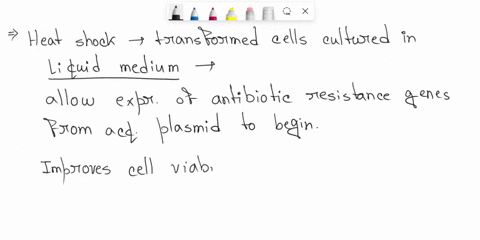 ⇒ Heat shock → transformed cells cultured in
Liquid medium →
allow expr. of antibiotic resistance genes
from acq. plasmid to begin.
Improves cell viab